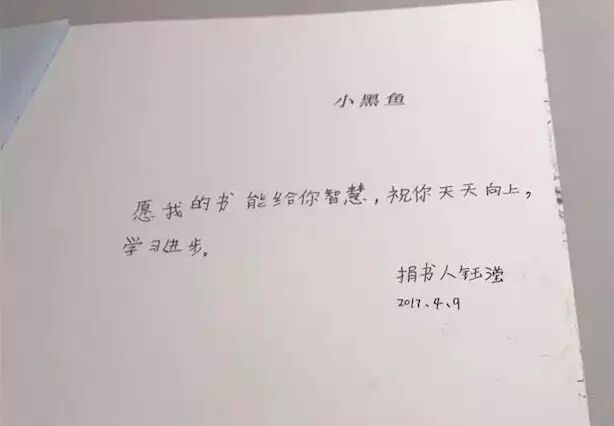 小黑鱼
愿我的书能给你智慧，祝你天天向上，
学习进步。
捐书人钰滢
2017、4、9